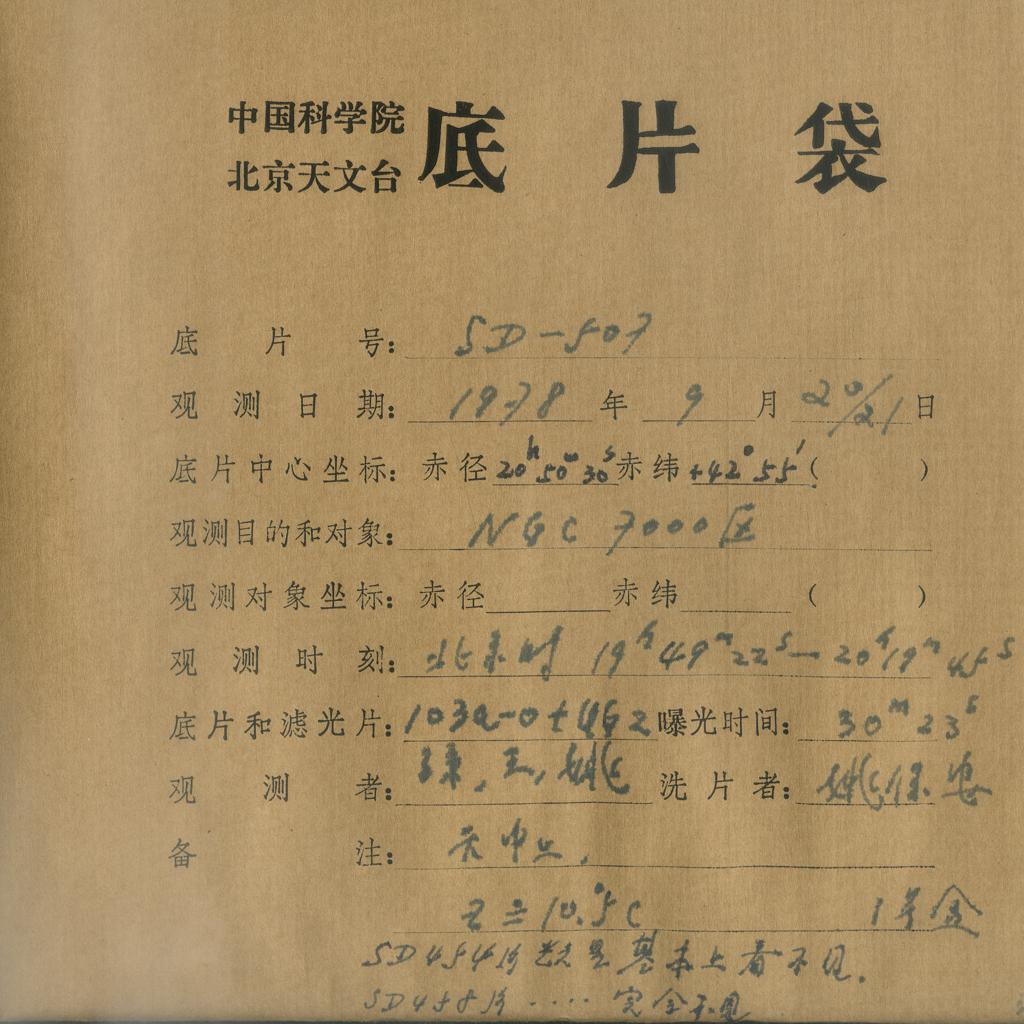 中国科学院
北京天文台
底片袋
底片号: SD-507
观测日期: 1978年9月20/21日
底片中心坐标: 赤径20h50m30s赤纬+42°55′( )
观测目的和对象: NGC 7000区
观测对象坐标: 赤径 赤纬 ( )
观测时刻: 北京时 19h49m22s—20h19m45s
底片和滤光片: 103a-O+GG2 曝光时间: 30m23s
观测者: 王,姚 洗片者: 姚保安
备注: 天中上.
=10.°5C 1号盒
SD454的 是基本上看不见.
SD458的 .... 完全不见